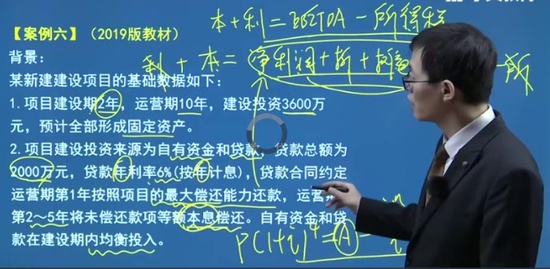 本+利=EBITDA-所得税
【案例六】(2019版教材)
利+本=净利润+折+摊
背景:
某新建建设项目的基础数据如下:
1. 项目建设期2年,运营期10年,建设投资3600万
元,预计全部形成固定资产。
2. 项目建设投资来源为自有资金和贷款,贷款总额为
2000万元,贷款年利率6%(按年计息),贷款合同约定
运营期第1年按照项目的最大偿还能力还款,运营
第2~5年将未偿还款项等额本息偿还。自有资金和贷
款在建设期内均衡投入。
P(1+i)⁴=A